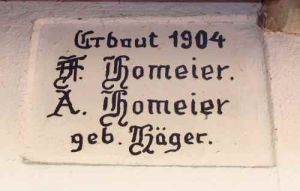 Erbaut 1904
F. Thomeier.
A. Thomeier
geb. Häger.